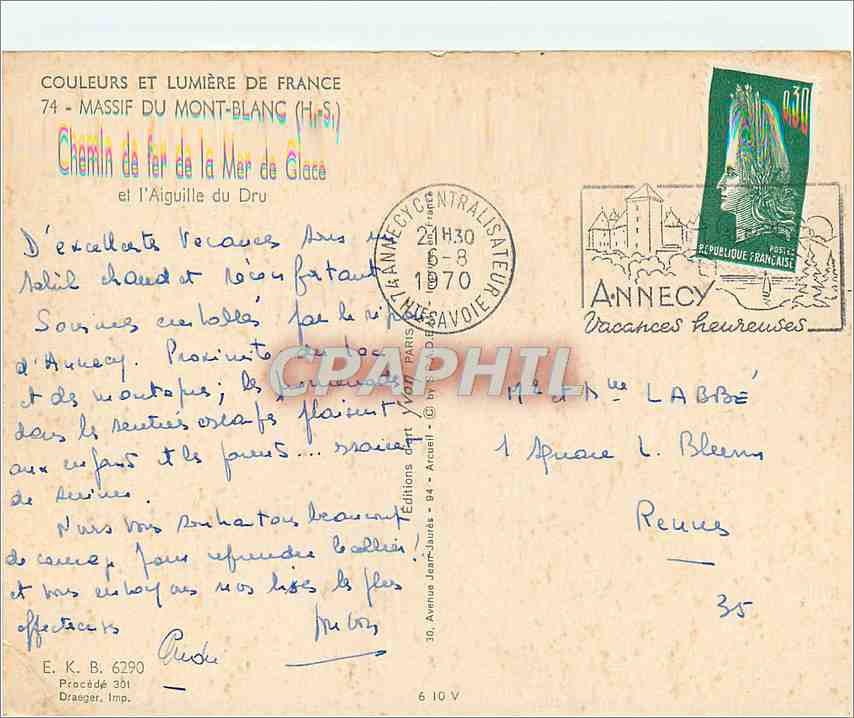 COULEURS ET LUMIÈRE DE FRANCE
74 - MASSIF DU MONT-BLANC (H.-S.)
Chemin de fer de la Mer de Glace
et l'Aiguille du Dru
D'excellentes Vacances sous un
soleil chaud et réconfortant
Sommes installés sur la
d'Annecy. Proximité du lac
et des montagnes ; les promenades
dans les sentiers plaisent
aux enfants et les parents ...
de
Nous vous souhaitons beaucoup
de courage pour reprendre le collier !
et vous envoyons nos bises les plus
affectueuses
E. K. B. 6290
Procédé 301
Draeger, Imp.
6 10 V
Éditions d'art Yvon PARIS
30, Avenue Jean-Jaurès - 94 - Arcueil - © by
en France
74 ANNECY CENTRALISATEUR
21H30
6-8
1970
HTE SAVOIE
0,30
POSTES
RÉPUBLIQUE FRANÇAISE
ANNECY
Vacances heureuses
CPAPHIL
Mr et Mme LABBÉ
1 Square L. Blum
Rennes
35